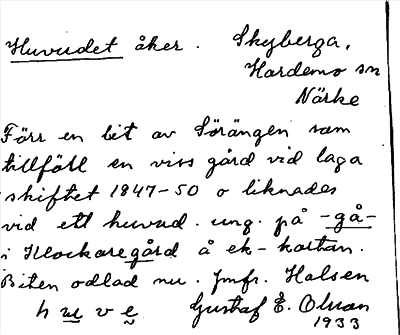 Huvudet åker. Skyberga,
Hardemo sn
Närke
Förr en bit av Sörängen som
tillföll en viss gård vid laga
skiftet 1847-50 o liknades
vid ett huvud. ung. på -gå-
i Klockaregård å ek-kartan.
Biten odlad nu. Jmfr. Halsen
h u v e Gustaf E. Olsson
1933